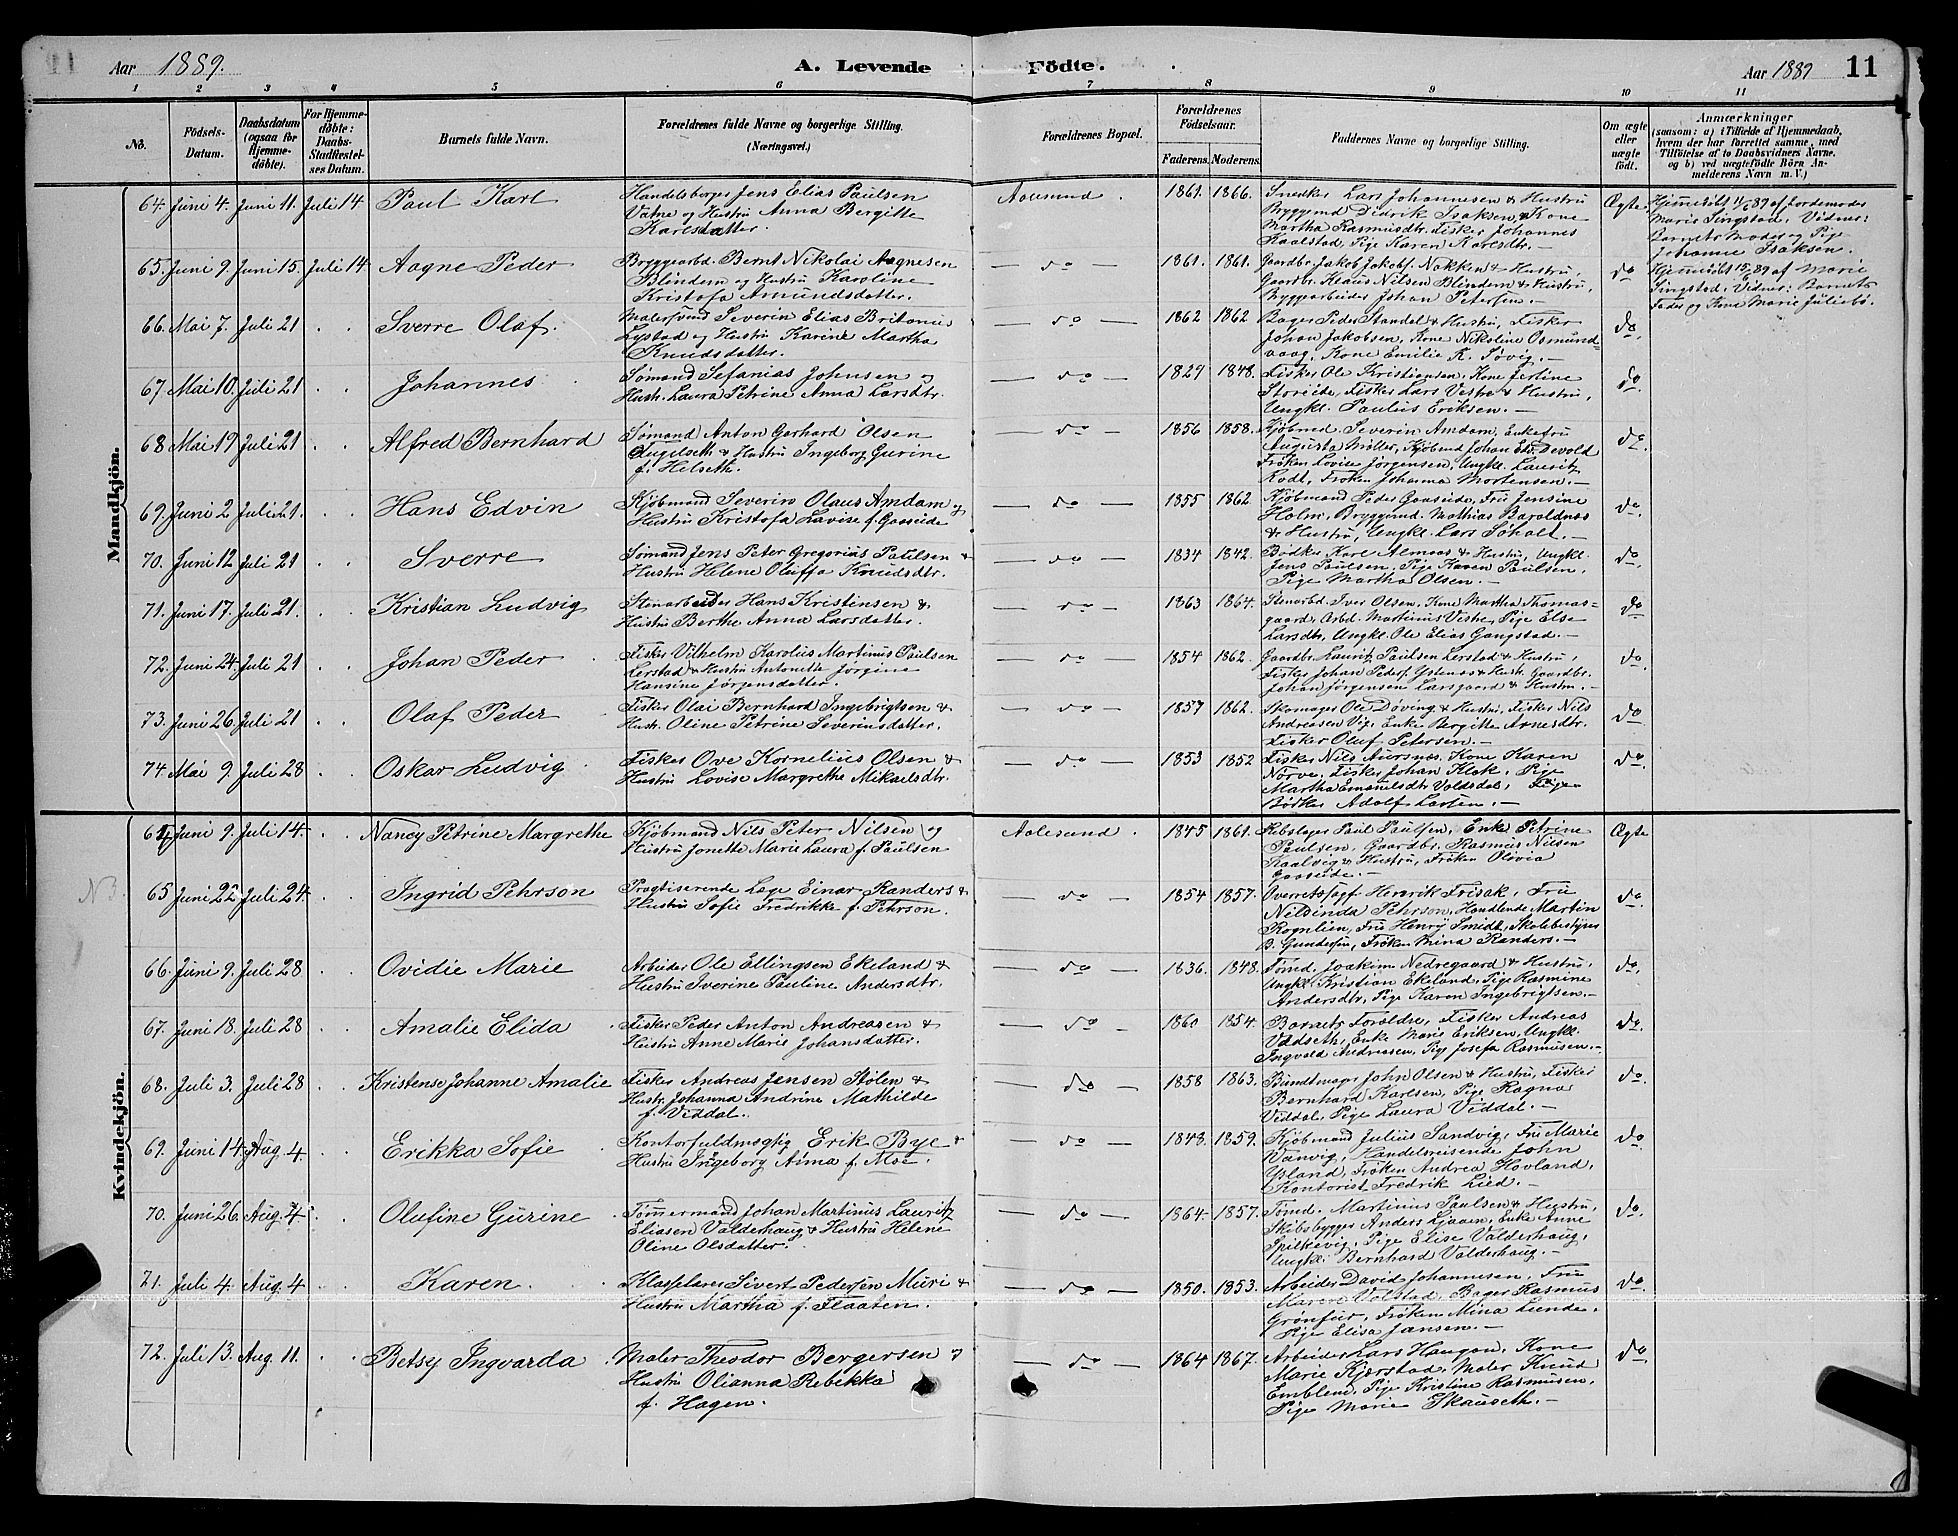 Aar 1889.
A. Levende Födte.
Aar 1889 11
1 2 3 4 5 6 7 8 9 10 11
No.
Födsels-Datum.
Daabsdatum (ogsaa for Hjemme-döbte).
For Hjemme-döbte: Daabs-Stadfæstel-ses Datum.
Barnets fulde Navn.
Forældrenes fulde Navne og borgerlige Stilling. (Næringsvei.)
Forældrenes Bopæl.
Forældrenes Födselsaar.
Faderens. Moderens.
Faddernes Navne og borgerlige Stilling.
Om ægte eller uægte födt.
Anmærkninger
(saasom: a) i Tilfælde af Hjemmedaab,
hvem der har forrettet samme, med
Tilföielse af to Daabsvidners Navne,
og b) ved uægtefödte Börn An-
melderens Navn m. V.)
Mandkjön.
64. Juni 4. Juni 11. Juli 14 Paul Karl
Handelsborger Jens Elias Paulsen
Vatne og Hustru Anna Bergitte
Karlsdatter.
Aalesund. 1861. 1866.
Snedker Lars Johannesen & Hustru
Byggmd Didrik Isaksen & Kone
Martha Rasmusdtr. Fisker Johannes
Kaalstad, Pige Karen Karlsdtr. —
Ægte
Hjemmedöbt 11/6 89 af Jordemoder
Marie Singstad. Vidner:
Barnets Moder og Pige
Johanne Isaksen.
65. Juni 9. Juni 15. Juli 14 Aagne Peder
Bryggearbd. Bernt Nikolai Aagnesen
Blindem og Hustru Karoline
Kristofa Amundsdatter.
— do — 1861. 1861.
Gaardbr. Jakob Jakobs. Nakken & Hustru,
Gaardbr. Klaus Nilsen Blindem & Hustru,
Bryggarbeider Johan Petersen. —
do
Hjemmedöbt 15/6 89 af Marie
Singstad. Vidner: Barnets
Fader og Kone Marie Juliebö.
66. Mai 7. Juli 21 Sverre Olaf.
Malersvend Severin Elias Britanius
Lystad og Hustru Karine Martha
Knudsdatter.
— do — 1862 1862
Bager Peder Standal & Hustru, Fisker
Johan Jakobsen, Kone Nikoline Osmund-
vaag, Kone Emilie K. Søvig. —
do
67. Mai 10. Juli 21 Johannes
Sømand Sefanias Johnsen og
Hustr. Laura Petrine Anna Larsdtr.
— do — 1829 1848.
Fisker Ole Kristiansen, Kone Jertine
Storeide, Fisker Lars Vestre & Hustru,
Ungkl. Paulus Eriksen. —
do
68 Mai 19 Juli 21 Alfred Bernhard
Sømand Anton Gerhard Olsen
Fugelseth & Hustru Ingeborg Gurine
f. Helseth.
— do — 1856 1858.
Kjöbmd. Severin Amdam, Enkefru
Augusta Möller, Kjöbmd Johan Devold
Fröken Lovise Jörgensen, Ungkl. Lauritz
Rødt, Fröken Johanna Mortensen. —
do
69. Juni 2. Juli 21. Hans Edvin
Kjöbmand Severin Olaus Amdam og
Hustru Kristofa Lavise f. Gaaseide
— do — 1855 1862.
Kjöbmand Peder Gaaseide, Fru Jensine
Holm, Bryggemd. Mathias Baraldnæs
& Hustru, Ungkl. Lars Søholt. —
do
70. Juni 12 Juli 21 Sverre
Sømand Jens Peter Gregorius Paulsen &
Hustru Helene Oluffa Knudsdtr.
— do — 1834 1842.
Bødker Karl Almaas & Hustru, Ungkl.
Jens Paulsen, Pige Karen Paulsen,
Pige Martha Olsen. —
do
71. Juni 17. Juli 21. Kristian Ludvig
Stenarbeider Hans Kristensen &
Hustru Berthe Anna Larsdatter.
— do — 1863 1864.
Stenarbd. Iver Olsen, Kone Martha Thomas-
gaard, Arbd. Martinus Vestre, Pige Else
Larsdtr, Ungkl. Ole Elias Gangstad. —
do
72. Juni 24. Juli 21 Johan Peder
Fisker Vilhelm Karolus Martinus Paulsen
Lerstad & Hustru Antonette Jörgine
Hansine Jörgensdatter.
— do — 1854 1862.
Gaardbr. Lauritz Paulsen Lerstad & Hustru,
Fisker Johan Peders. Ystenæs & Hustr. Gaardbr.
Johan Jörgensen Larsgaard & Hustru. —
do
73. Juni 26. Juli 21 Olaf Peder
Fisker Olai Bernhard Ingebrigtsen &
Hustr. Oline Petrine Severinsdatter.
— do — 1857 1862.
Skomager Ole Döving & Hustru, Fisker Nils
Andreasen Vig, Enke Bergitte Arnesdtr.
Fisker Oluf Petersen. —
do
74 Mai 9. Juli 28 Oskar Ludvig
Fisker Ove Kornelius Olsen &
Hustru Lovise Margrethe Mikaelsdtr.
— do — 1853 1852
Fisker Nils Aursnæs, Kone Karen
Nörve, Fisker Johan Klok, Pige
Martha Emanuelsdtr Voldsdal,
Bödker Adolf Larsen. —
do.
Kvindekjön.
64 Juni 9. Juli 14. Nancy Petrine Margrethe
Kjöbmand Nils Peter Nilsen og
Hustru Jonette Marie Laura f. Paulsen
Aalesund. 1845 1861.
Rebslager Paul Paulsen, Enke Petrine
Paulsen, Gaardbr. Rasmus Nilsen
Kaalvig & Hustru, Fröken Olivia
Gaaseide. —
Ægte
NB.
65 Juni 22. Juli 24. Ingrid Pehrson
Practiserende Læge Einar Randers &
Hustru Sofie Fredrikke f. Pehrson.
— do — 1854 1857.
Overretssagf. Henrik Frisak, Fru
Nilsinda Pehrson, Handlende Martin
Rognlien, Fru Henny Smidt, Skolebestyrer
B. Gundersen, Fröken Mina Randers. —
do
66. Juni 9. Juli 28 Ovidie Marie
Arbeider Ole Ellingsen Ekeland &
Hustru Iverine Pauline Andersdtr.
— do — 1836. 1848.
Tömd. Joakim Nedregaard & Hustru,
Ungkl. Kristian Ekeland, Pige Rasmine
Andersdtr, Pige Karen Ingebrigtsen. —
do.
67. Juni 18. Juli 28 Amalie Elida
Fisker Peder Anton Andreasen &
Hustru Anne Marie Johansdatter.
— do — 1860 1854.
Barnets Forældre, Fisker Andreas
Vadseth, Enke Marie Eriksen, Ungkl.
Ingvald Andreasen, Pige Josefa Rasmusen. —
do.
68. Juli 3. Juli 28 Kristense Johanne Amalie
Fisker Andreas Jensen Stölen &
Hustr. Johanna Andrine Mathilde
f. Viddal.
— do — 1858 1863.
Bundtmager John Olsen & Hustru, Fisker
Bernhard Karlsen, Pige Ragna
Viddal, Pige Laura Viddal. —
do.
69. Juni 14. Aug. 4. Erikka Sofie
Kontorfuldmægtig Erik Bye &
Hustru Ingeborg Alma f. Moe.
— do — 1848. 1859.
Kjöbmand Julius Sandvig, Fru Marie
Vanvig, Handelsreisende John
Ysland, Fröken Andrea Hovland,
Kontorist Fredrik Lied. —
do
70. Juni 26. Aug. 4 Olufine Gurine
Tømmermand Johan Martinus Lauritz
Eliasen Valderhaug & Hustru Helene
Oline Olsdatter.
— do — 1864. 1857.
Tömd. Martinus Paulsen & Hustru,
Skibsbygger Anders Ljaaen, Enke Anne
Spilkevig, Pige Elise Valderhaug,
Ungkl. Bernhard Valderhaug. —
do.
71. Juli 4. Aug. 4 Karen
Klasselærer Sivert Pedersen Muri &
Hustru Martha f. Flaaten.
— do — 1850. 1853.
Arbeider David Johannesen, Fru
Maren Volstad, Bager Rasmus
Grönfur, Fröken Mina Liende,
Pige Elisa Jansen. —
do.
72. Juli 13. Aug. 11. Betsy Ingvarda
Maler Theodor Bergersen &
Hustru Olianna Rebekka
f. Hagen.
— do — 1864 1867.
Arbeider Lars Haugan, Kone
Marie Kjærstad, Maler Knud
Emblem, Pige Kristine Rasmusen,
Pige Marie Skauseth. —
do.